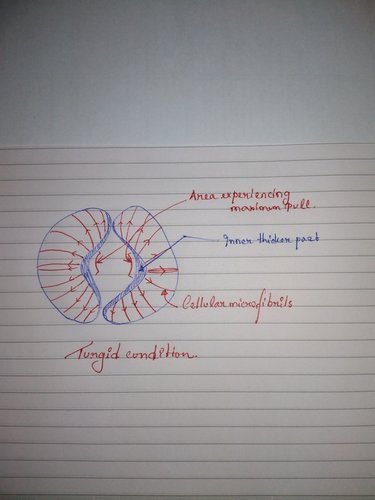 Area experiencing
maximum pull.
Inner thicker part
Cellular microfibrils
Turgid condition.